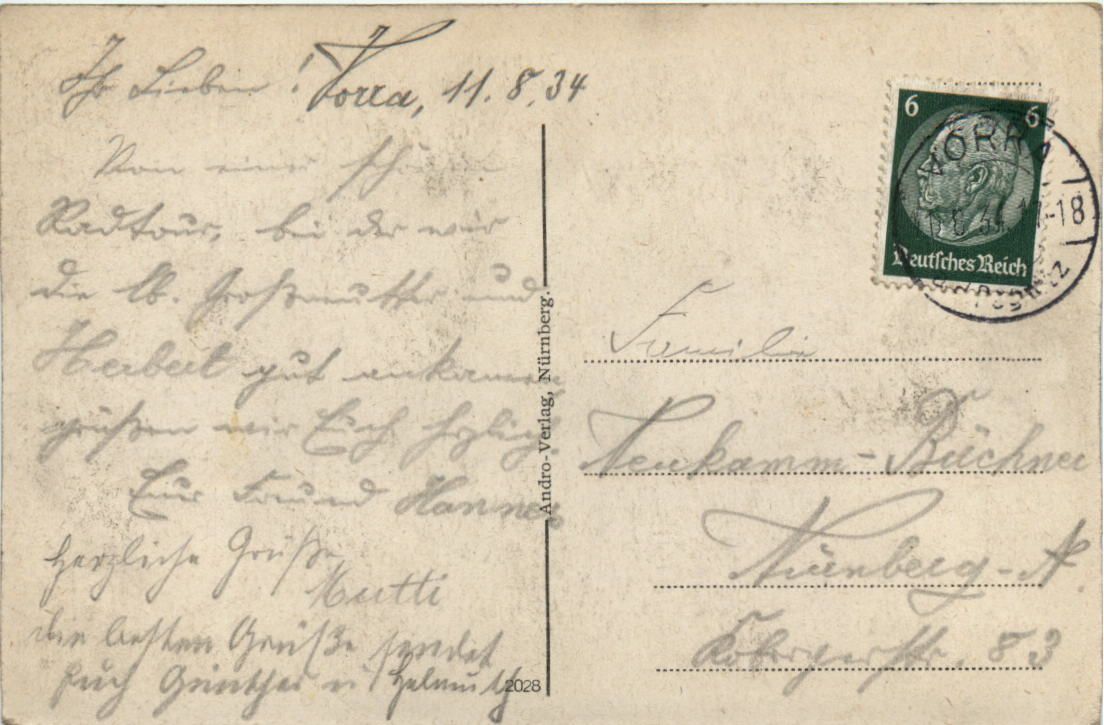 Ihr Lieben! Vorra, 11.8.34
Von einer schönen
Radtour, bei der wir
die lb. Großmutter und
Herbert gut ankamen
grüßen wir Euch herzlich
Eur Freund Hannes
Herzliche Grüße
Mutti
die besten Grüße sendet
Euch Günther u. Helmuth
2028
Andro-Verlag, Nürnberg.
6 6
Deutsches Reich
VORRA
34 17-18
(Pegnitz)
Familie
Neukamm-Büchner
Nürnberg-N.
Kobergerstr. 83